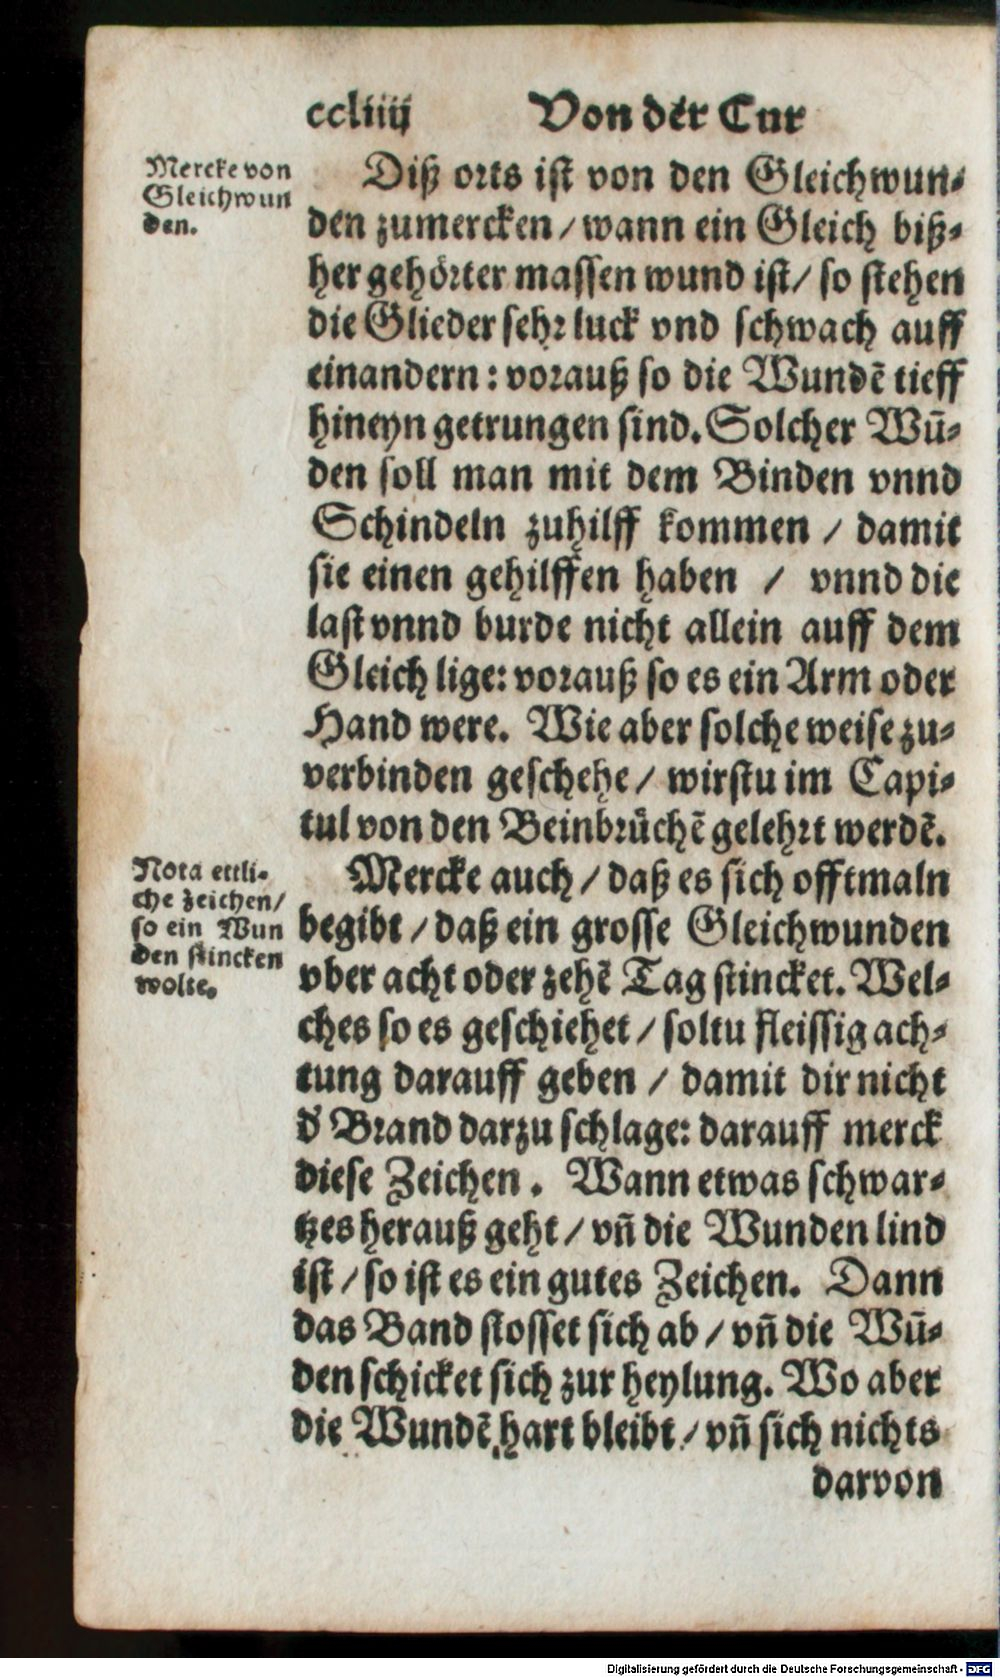 ccliiij Von der Cur
Mercke von
Gleichwun
den.
Diß orts ist von den Gleichwun-
den zumercken / wann ein Gleich biß-
her gehörter massen wund ist / so stehen
die Glieder sehr luck vnd schwach auff
einandern : vorauß so die Wundẽ tieff
hineyn getrungen sind. Solcher Wũ-
den soll man mit dem Binden vnnd
Schindeln zuhilff kommen / damit
sie einen gehilffen haben / vnnd die
last vnnd burde nicht allein auff dem
Gleich lige: vorauß so es ein Arm oder
Hand were. Wie aber solche weise zu-
verbinden geschehe / wirstu im Capi-
tul von den Beinbrüchẽ gelehrt werdẽ.
Nota ettli-
che zeichen /
so ein Wun
den stincken
wolte.
Mercke auch / daß es sich offtmaln
begibt / daß ein grosse Gleichwunden
vber acht oder zehẽ Tag stincket. Wel-
ches so es geschiehet / soltu fleissig ach-
tung darauff geben / damit dir nicht
d' Brand darzu schlage: darauff merck
diese Zeichen. Wann etwas schwar-
tzes herauß geht / vñ die Wunden lind
ist / so ist es ein gutes Zeichen. Dann
das Band stosset sich ab / vñ die Wũ-
den schicket sich zur heylung. Wo aber
die Wundẽ hart bleibt / vñ sich nichts
darvon
Digitalisierung gefördert durch die Deutsche Forschungsgemeinschaft - DFG